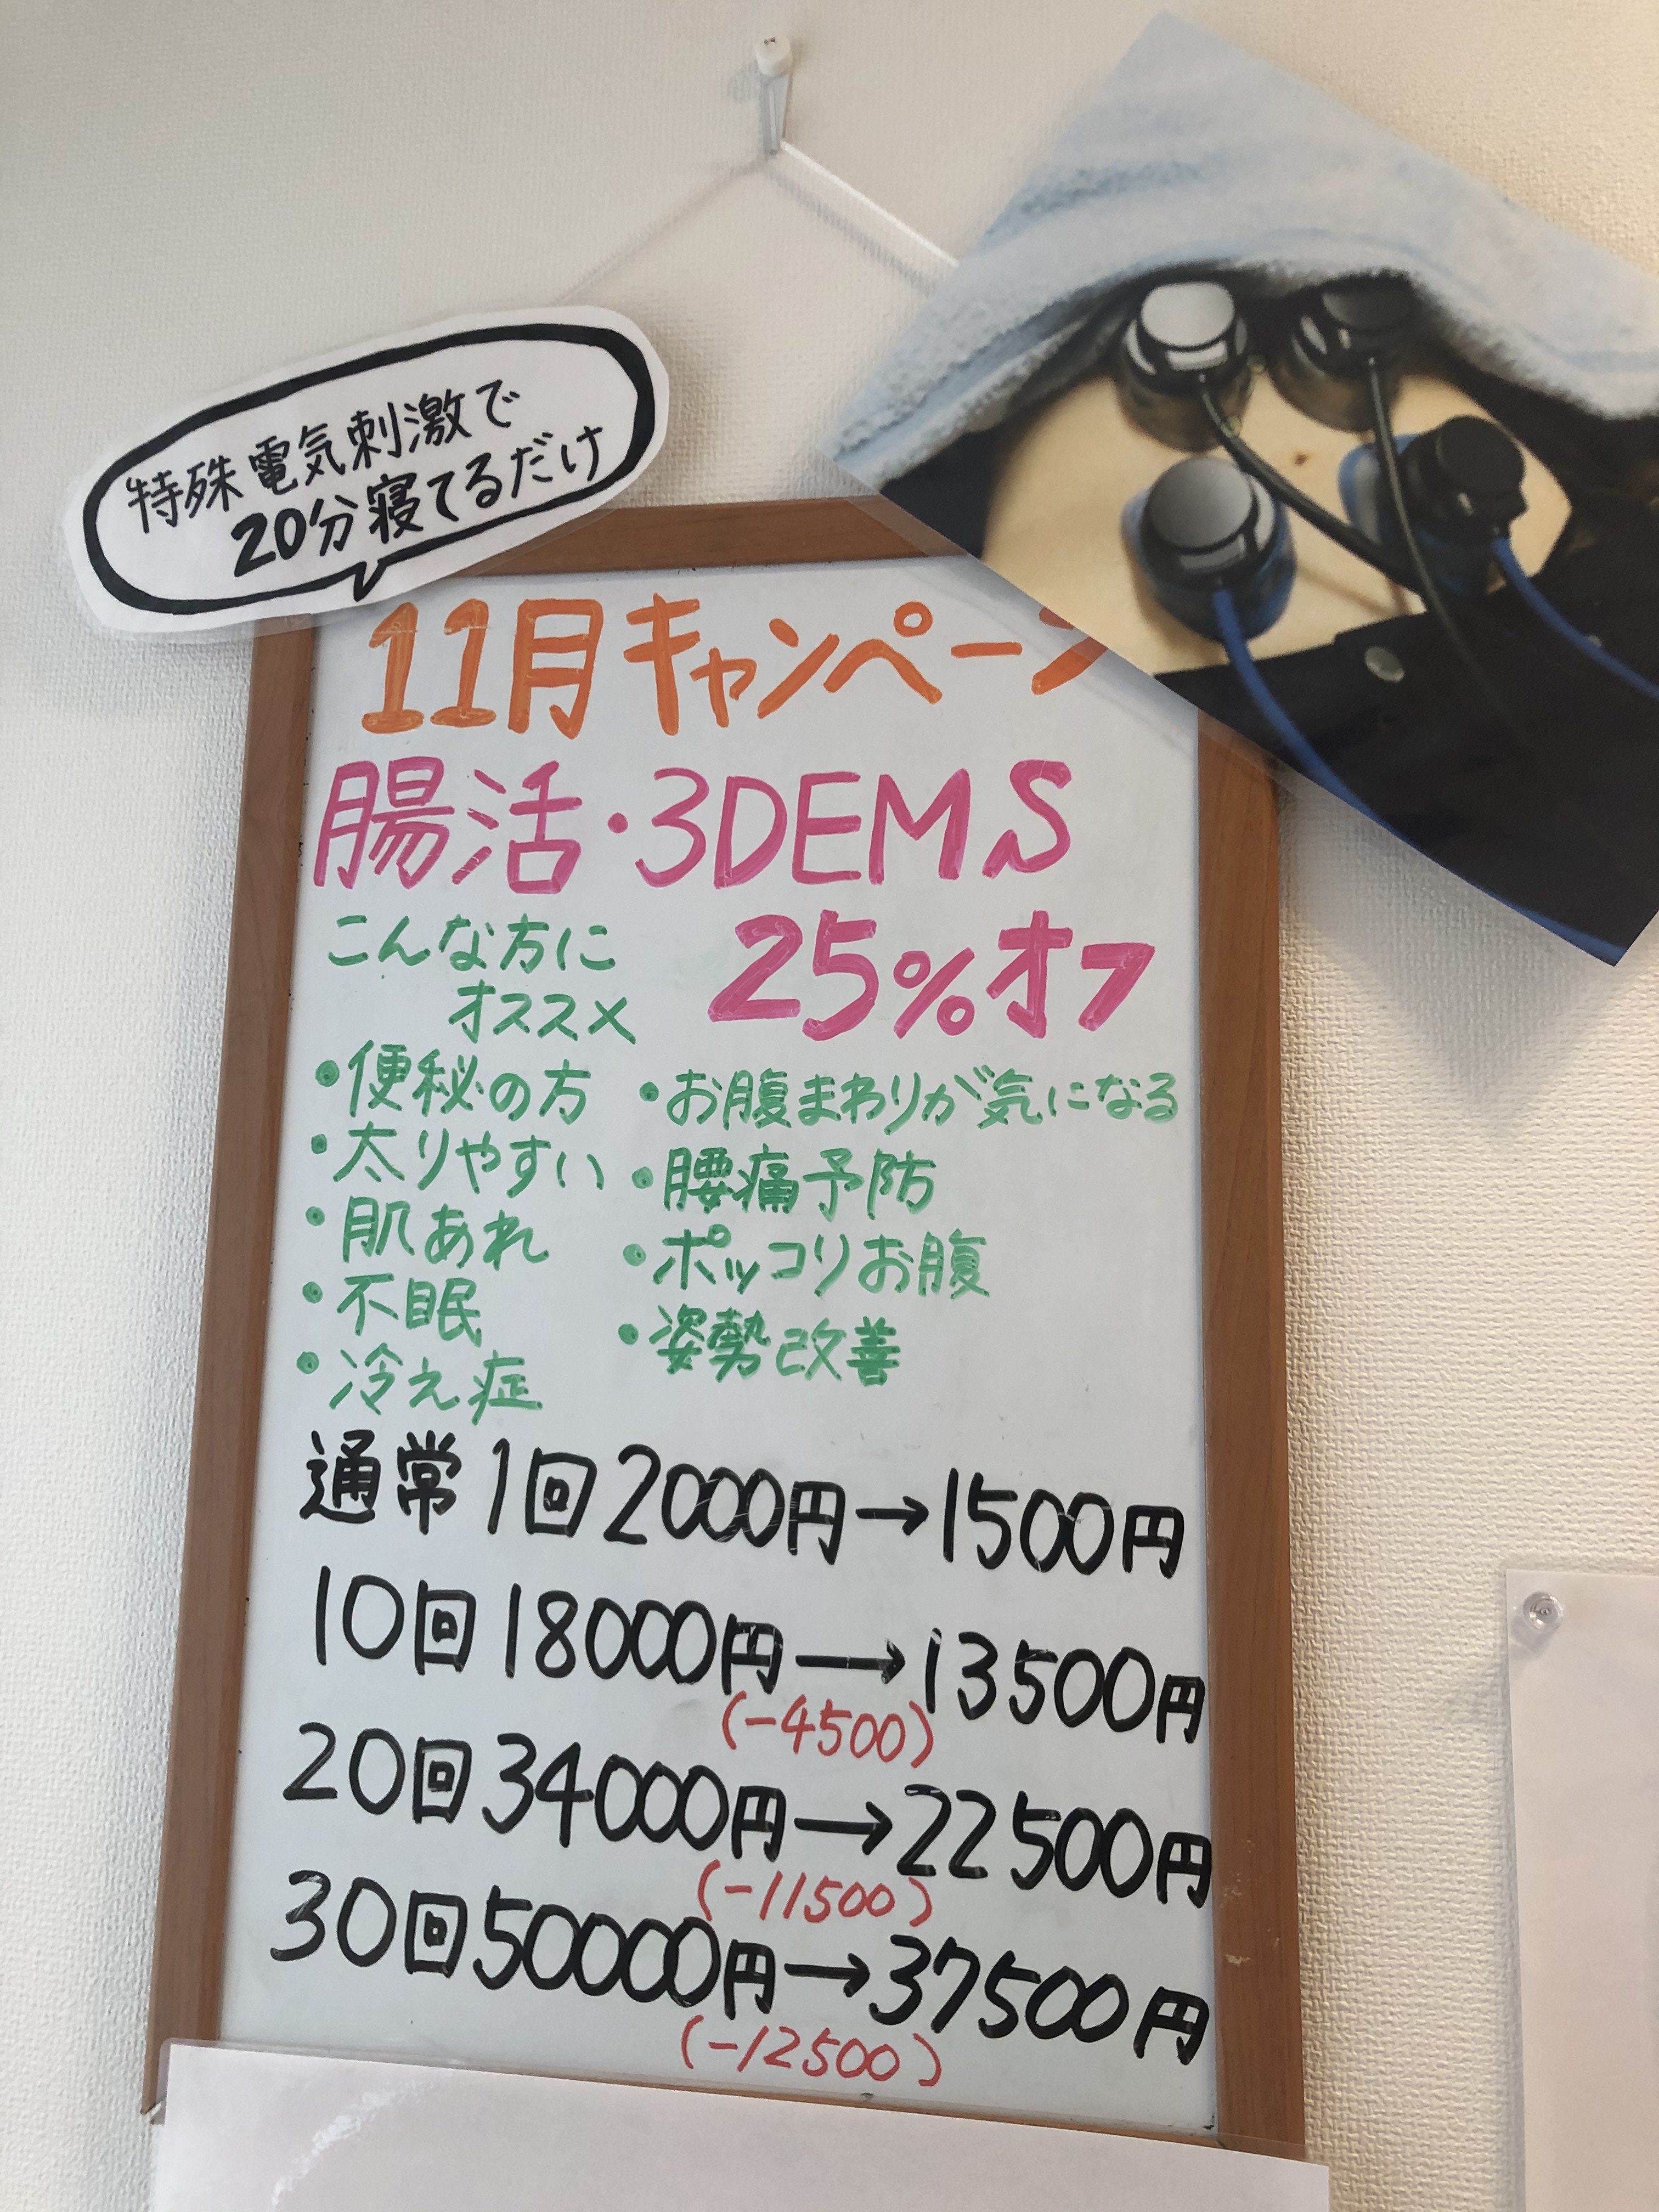 特殊電気刺激で
20分寝てるだけ
11月キャンペーン
腸活・3DEMS
25%オフ
こんな方に
オススメ
・便秘の方
・太りやすい
・肌あれ
・不眠
・冷え症
・お腹まわりが気になる
・腰痛予防
・ポッコリお腹
・姿勢改善
通常1回2000円→1500円
10回18000円→13500円
(-4500)
20回34000円→22500円
(-11500)
30回50000円→37500円
(-12500)